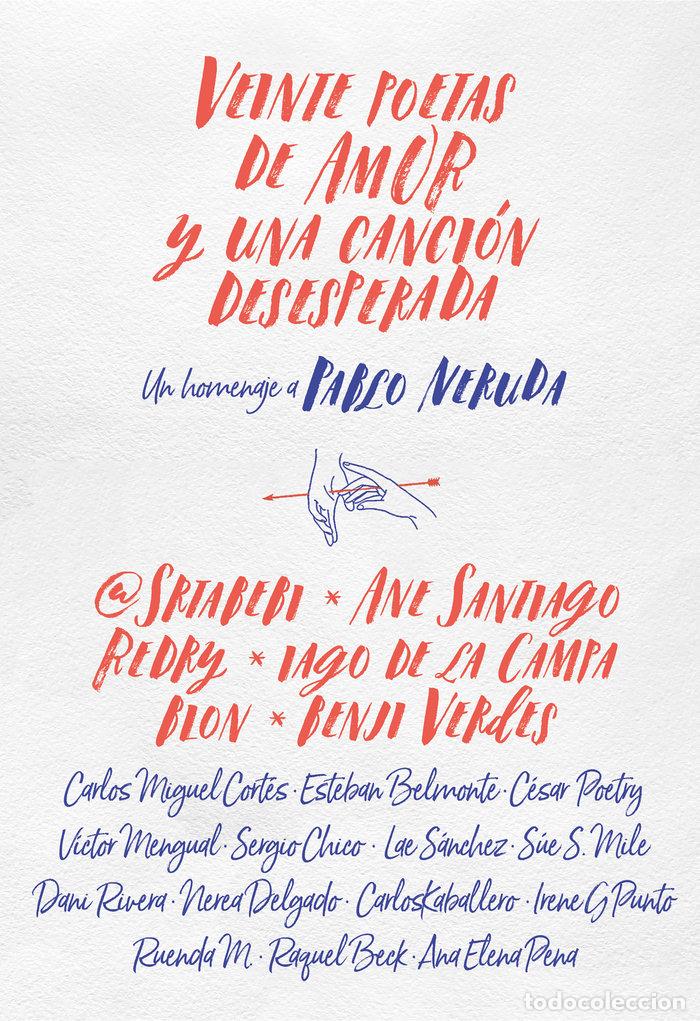 VEINTE POETAS
DE AMOR
y UNA CANCIÓN
DESESPERADA
Un homenaje a PABLO NERUDA
@SRTABEBI * ANE SANTIAGO
REDRY * IAGO DE LA CAMPA
BLON * BENJI VERdES
Carlos Miguel Cortés · Esteban Belmonte · César Poetry
Víctor Mengual · Sergio Chico · Lae Sánchez · Súe S. Mile
Dani Rivera · Nerea Delgado · CarlosKaballero · Irene G Punto
Ruenda M. · Raquel Beck · Ana Elena Pena
todocoleccion